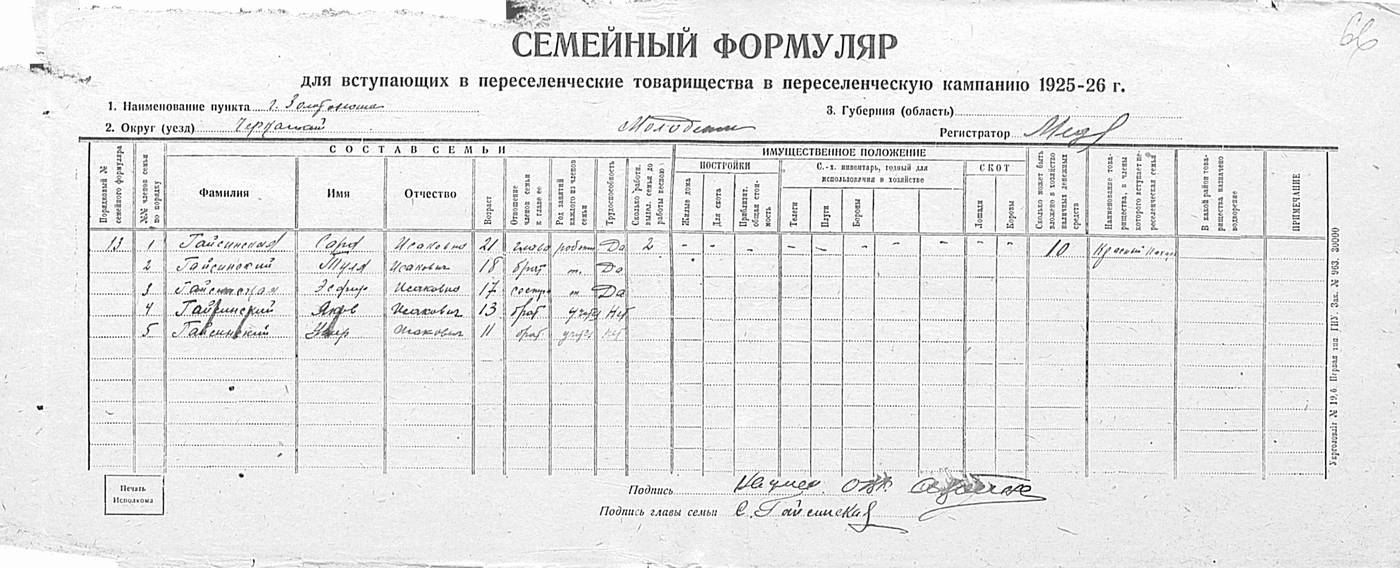 66
СЕМЕЙНЫЙ ФОРМУЛЯР
для вступающих в переселенческие товарищества в переселенческую кампанию 1925-26 г.
1. Наименование пункта г. Золотоноша
3. Губерния (область)
2. Округ (уезд) Черкасский
Регистратор
СОСТАВ СЕМЬИ
ИМУЩЕСТВЕННОЕ ПОЛОЖЕНИЕ
ПОСТРОЙКИ
С.-х. инвентарь, годный для использования в хозяйстве
СКОТ
Порядковый № семейного формуляра
№№ членов семьи по порядку
Фамилия
Имя
Отчество
Возраст
Отношение членов семьи к главе ее
Род занятий каждого из членов семьи
Трудоспособность
Сколько работн. вывел. семья до работы весною
Жилые дома
Для скота
Приблизит. общая стоимость
Телеги
Плуги
Бороны
Лошади
Коровы
Сколько может быть вложено в хозяйство наличных денежных средств
Наименование товарищества, в члены которого вступает переселенческая семья
В какой район товарищества назначено водворение
ПРИМЕЧАНИЕ
13 1 Гайсинская Сара Исаковна 21 глава Да 2 - - - - - - - - - 10 Красный
2 Гайсинский Исакович 18 брат т. Да
3 Гайсинская Эсфир Исаковна 17 сестра т Да
4 Гайсинский Яков Исакович 13 брат Нет
5 Гайсинский Исакович 11 брат Нет
Печать Исполкома
Подпись
Подпись главы семьи С. Гайсинская
Укрголовліт № 19.б. Первая тип. ГИУ. Зак. № 963. 30000